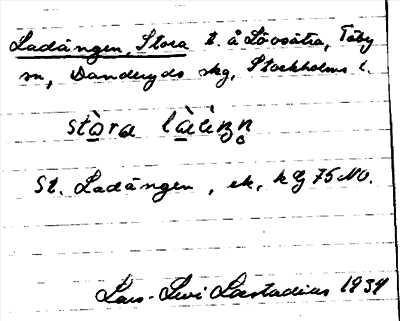 Ladängen, Stora t. å Lövsätra, Täby
sn, Danderyds skg, Stockholms l.
stòra làe̊ŋn̥
St. Ladängen, ek, k Bl 75 NO.
Lars-Levi Læstadius 1934